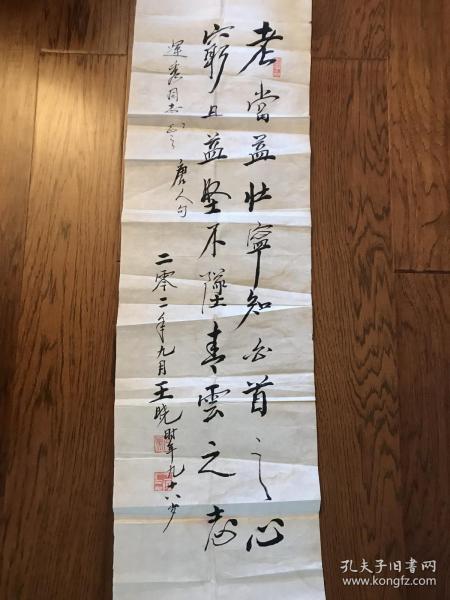 老當益壯寧知白首之心
窮且益堅不墜青雲之志
同志正之
唐人句
二零二年九月王晓時年九十八岁
孔夫子旧书网
www.kongfz.com